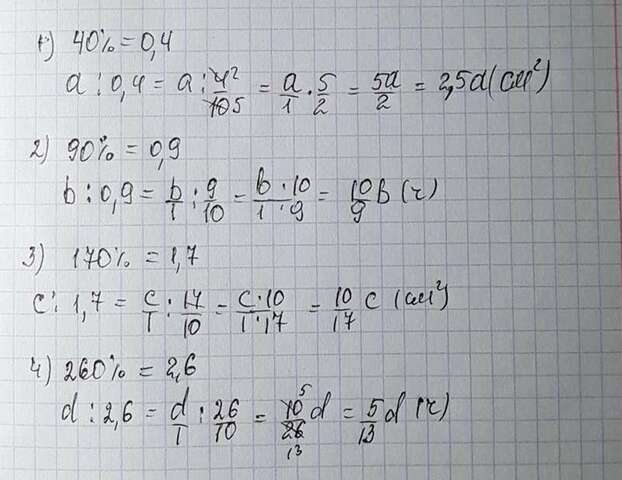 1) 40% = 0,4
a : 0,4 = a : 4²/105 = a/1 · 5/2 = 5a/2 = 2,5a (см²)
2) 90% = 0,9
b : 0,9 = b/1 : 9/10 = b·10/1·9 = 10/9 b (г)
3) 170% = 1,7
c : 1,7 = c/1 : 17/10 = c·10/1·17 = 10/17 c (см²)
4) 260% = 2,6
d : 2,6 = d/1 : 26/10 = 10⁵/26₁₃ d = 5/13 d (г)